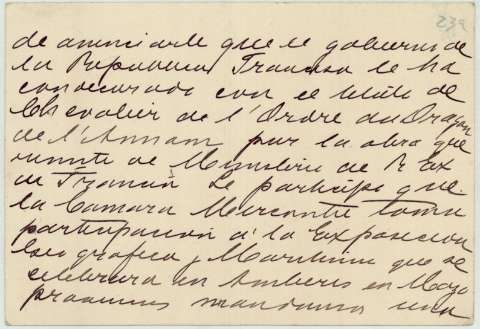 239
de anunciarle que el gobierno de
la Republica Francesa le ha
condecorado con el titulo de
Chevalier de l'Ordre du Dragon
de l'Annam por la obra que
de Ministerio de R. Ex
de Francia Le participo que
la Camara Mercantil toma
participacion á la Exposicion
Geografica y Maritima que se
celebrara en Amberes en Mayo
proximo mandamos una